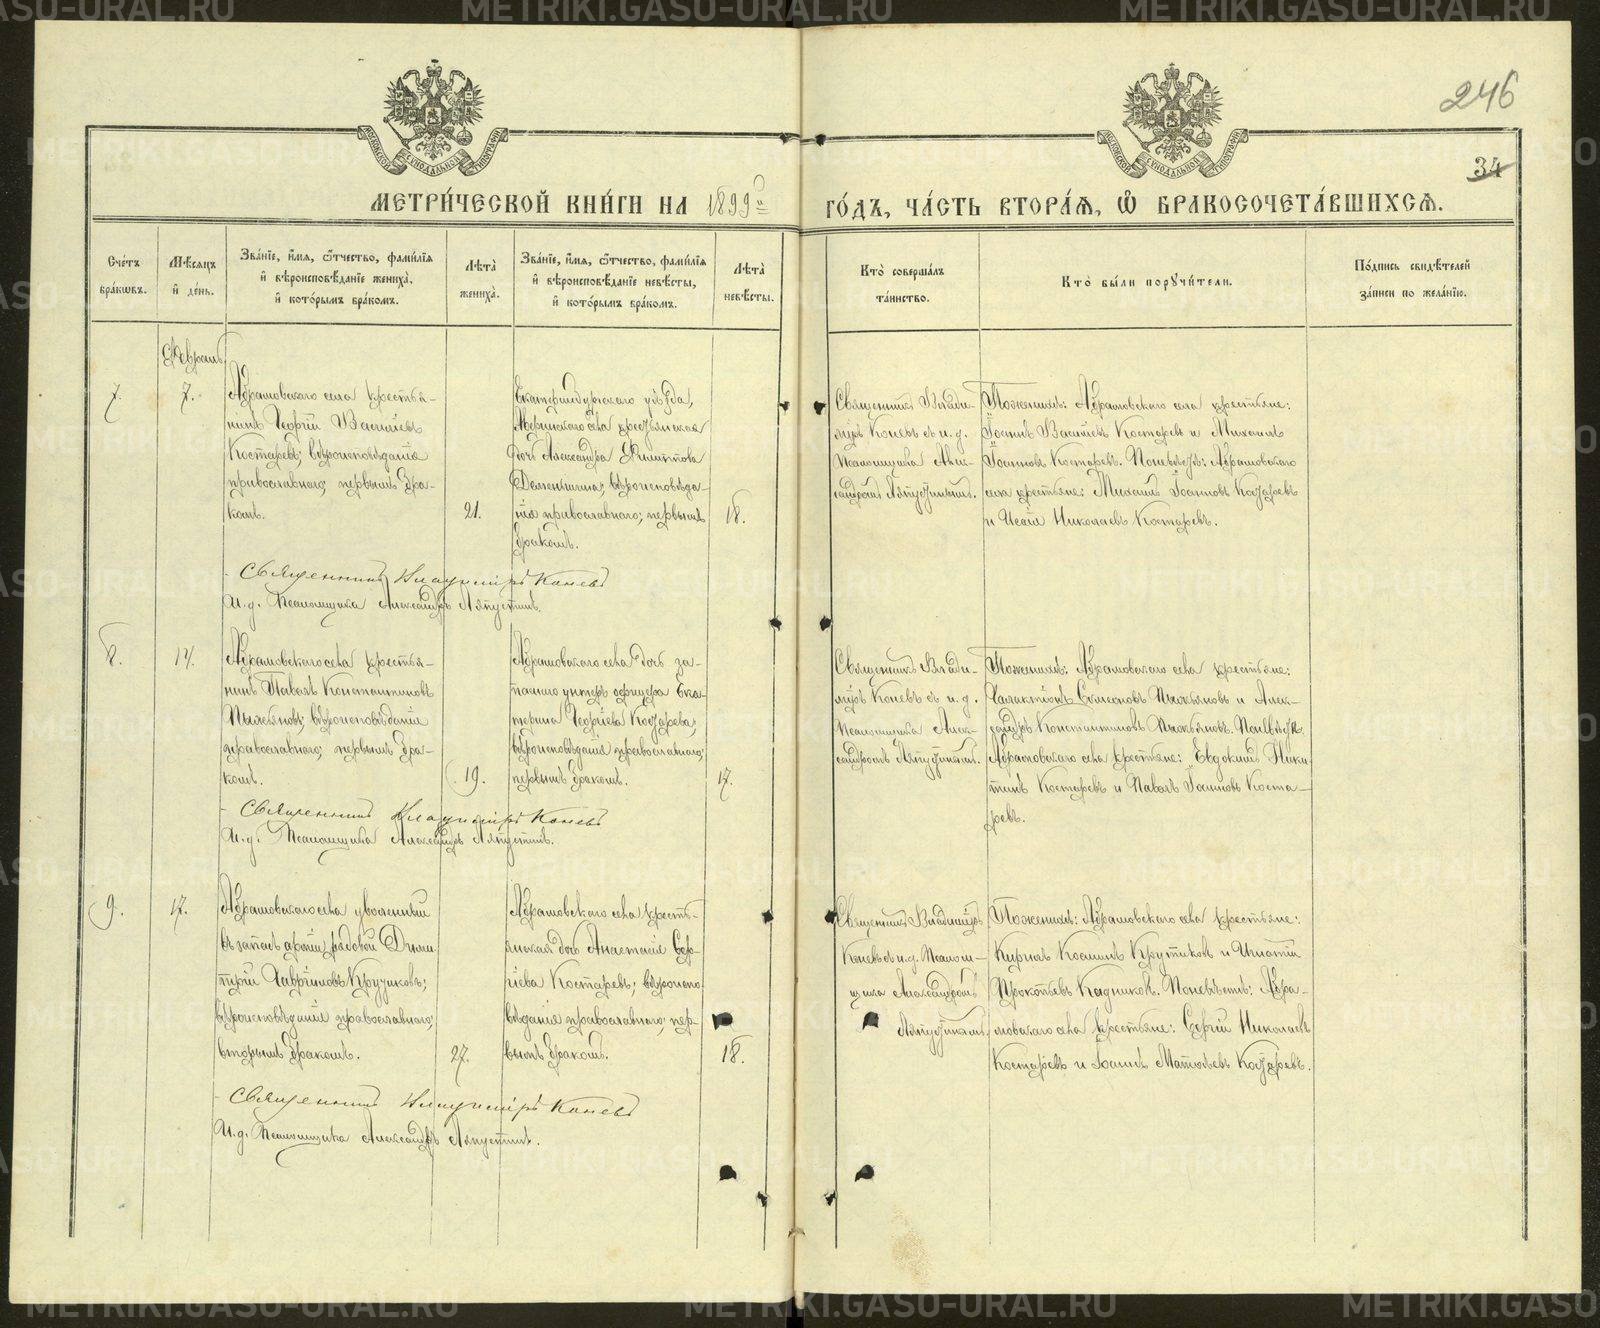 246
34
МОСКОВСКОЙ СУНОДАЛЬНОЙ ТИПОГРАФІИ
МОСКОВСКОЙ СУНОДАЛЬНОЙ ТИПОГРАФІИ
МЕТРИ́ЧЕСКОЙ КНИ́ГИ НА 1899й
ГО́ДЪ, ЧА́СТЬ ВТОРА́Я, Ѡ БРАКОСОЧЕТА́ВШИХСЯ.
Сче́тъ бра́кѡвъ.
Мѣ́сяцъ и҆ де́нь.
Зва́нїе, и҆́мя, ѻ҆́тчество, фами́лїя и҆ вѣроисповѣ́данїе жениха̀, и҆ кото́рымъ бра́комъ.
Лѣ́та жениха̀.
Зва́нїе, и҆́мя, ѻ҆́тчество, фами́лїя и҆ вѣроисповѣ́данїе невѣ́сты, и҆ кото́рымъ бра́комъ.
Лѣ́та невѣ́сты.
Кто̀ соверша́лъ та́инство.
Кто̀ бы́ли поручи́тели.
По́дпись свидѣ́телей за́писи по жела́нїю.
Февраль
7.
7.
Абрамовскаго села крестья-
нинъ Георгій Васильевъ
Костаревъ; вѣроисповѣданія
православнаго; первымъ бра-
комъ.
21.
Екатеринбургскаго уѣзда,
села крестьянская
дочь Александра Филиппова
вѣроисповѣда-
нія православнаго; первымъ
бракомъ.
18.
Священникъ Влади-
міръ Коневъ съ и. д.
Псаломщика Алек-
сандромъ Ляпустинымъ.
По женихѣ: Абрамовскаго села крестьяне:
Іоаннъ Васильевъ Костаревъ и Михаилъ
Іоанновъ Костаревъ. По невѣстѣ: Абрамовскаго
села крестьяне: Михаилъ Іоанновъ Костаревъ
и Исаія Николаевъ Костаревъ.
Священникъ Владиміръ Коневъ
И. д. Псаломщика Александръ Ляпустинъ.
8.
14.
Абрамовскаго села крестья-
нинъ Павелъ Константиновъ
Пьянковъ; вѣроисповѣданія
православнаго; первымъ бра-
комъ.
19.
Абрамовскаго села дочь за-
паснаго унтеръ офицера Ека-
терина Георгіева Костарева;
вѣроисповѣданія православнаго;
первымъ бракомъ.
17.
Священникъ Влади-
міръ Коневъ съ и. д.
Псаломщика Алек-
сандромъ Ляпустинымъ.
По женихѣ: Абрамовскаго села крестьяне:
Галактіонъ Симеоновъ Пьянковъ и Алек-
сандръ Константиновъ Пьянковъ. По невѣстѣ:
Абрамовскаго села крестьяне: Евдокимъ Ники-
тинъ Костаревъ и Павелъ Іоанновъ Коста-
ревъ.
Священникъ Владиміръ Коневъ
И. д. Псаломщика Александръ Ляпустинъ.
9.
17.
Абрамовскаго села уволенный
въ запасъ арміи рядовой Дими-
трій Гавріиловъ Крутиковъ;
вѣроисповѣданія православнаго;
вторымъ бракомъ.
27.
Абрамовскаго села кресть-
янская дочь Анастасія Сер-
гіева Костарева; вѣроиспо-
вѣданія православнаго; пер-
вымъ бракомъ.
18.
Священникъ Владиміръ
Коневъ съ и. д. Псалом-
щика Александромъ
Ляпустинымъ.
По женихѣ: Абрамовскаго села крестьяне:
Кириллъ Косминъ Крутиковъ и Игнатій
Прокопьевъ Кадниковъ. По невѣстѣ: Абра-
мовскаго села крестьяне: Сергій Николаевъ
Костаревъ и Іоаннъ Матѳеевъ Костаревъ.
Священникъ Владиміръ Коневъ
И. д. Псаломщика Александръ Ляпустинъ.
METRIKI.GASO-URAL.RU